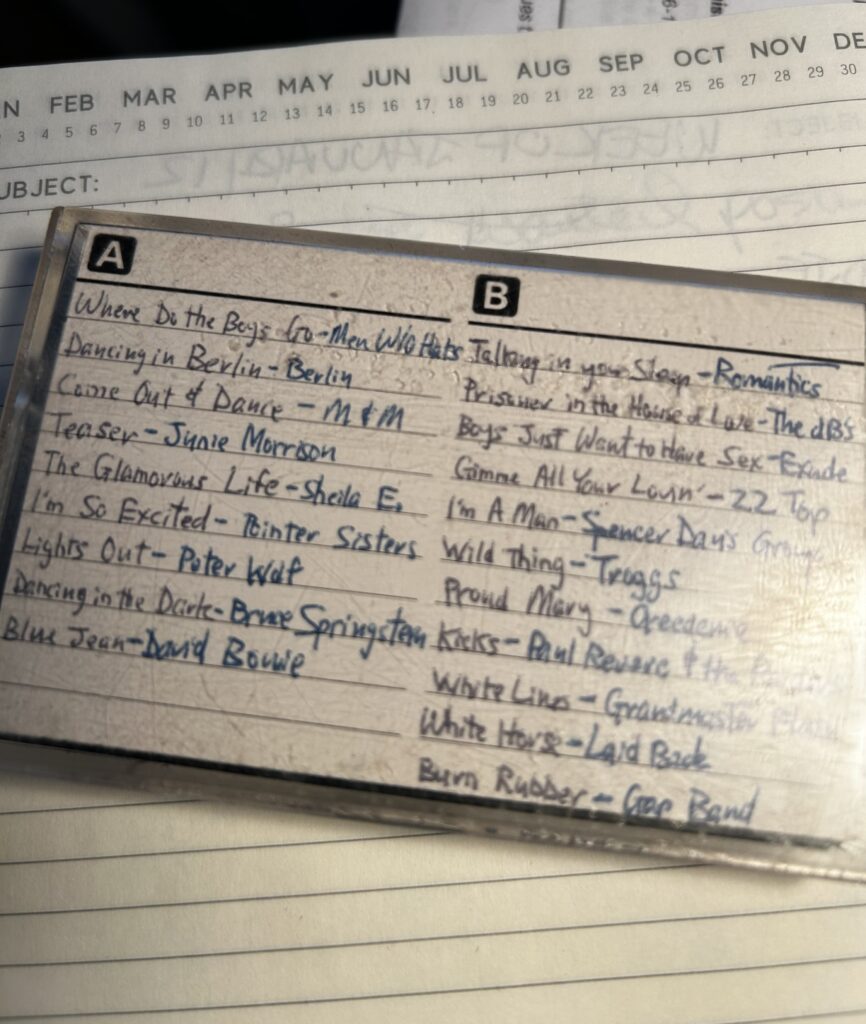 FEB MAR APR MAY JUN JUL AUG SEP OCT NOV DE
3 4 5 6 7 8 9 10 11 12 13 14 15 16 17 18 19 20 21 22 23 24 25 26 27 28 29 30
UBJECT:
A
Where Do the Boys Go - Men W/o Hats
Dancing in Berlin - Berlin
Come Out & Dance - M & M
Teaser - Junie Morrison
The Glamorous Life - Sheila E.
I'm So Excited - Pointer Sisters
Lights Out - Peter Wolf
Dancing in the Dark - Bruce Springsteen
Blue Jean - David Bowie
B
Talking in your Sleep - Romantics
Prisoner in the House of Love - The dB's
Boys Just Want to Have Sex - Exude
Gimme All Your Lovin' - ZZ Top
I'm A Man - Spencer Davis Group
Wild Thing - Troggs
Proud Mary -
Kicks - Paul Revere & the
White Lines - Grantmaster
White Horse - Laid Back
Burn Rubber - Gap Band